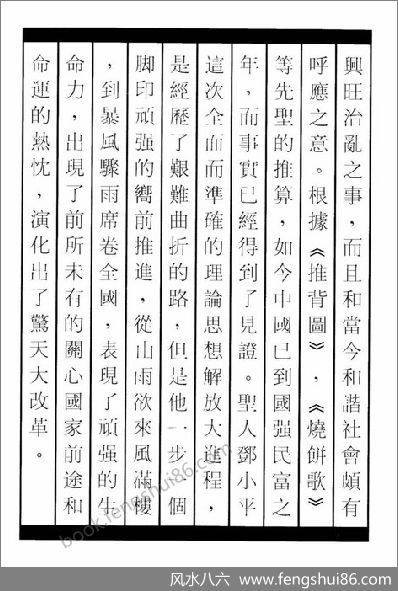 興旺治亂之事，而且和當今和諧社會頗有
呼應之意。根據《推背圖》，《燒餅歌》
等先聖的推算，如今中國已到國强民富之
年，而事實已經得到了見證。聖人鄧小平
這次全面而準確的理論思想解放大進程，
是經歷了艱難曲折的路，但是他一步一個
脚印頑强的嚮前推進，從山雨欲來風滿樓
，到暴風驟雨席卷全國，表現了頑强的生
命力，出現了前所未有的關心國家前途和
命運的熱忱，演化出了驚天大改革。
book.fengshui86.com
风水八六 www.fengshui86.com